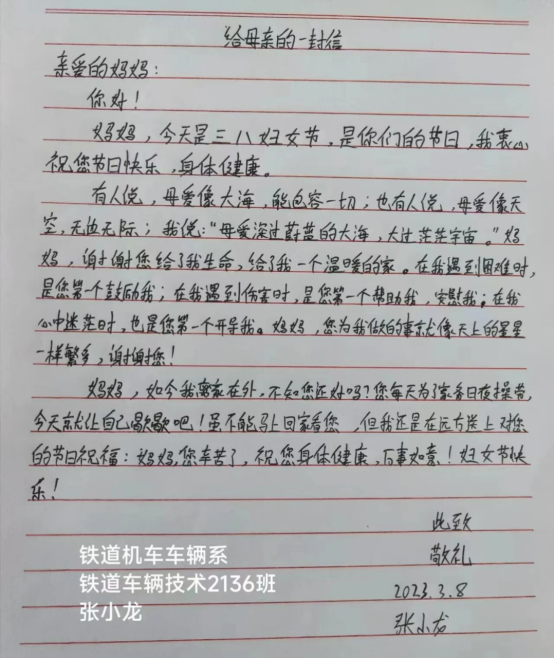 给母亲的一封信
亲爱的妈妈：
你好！
妈妈，今天是三八妇女节，是你们的节日，我衷心
祝您节日快乐，身体健康。
有人说，母爱像大海，能包容一切；也有人说，母爱像天
空，无边无际；我说："母爱深过蔚蓝的大海，大过茫茫宇宙。"妈
妈，谢谢您给了我生命，给了我一个温暖的家。在我遇到困难时，
是您第一个鼓励我；在我遇到伤害时，是您第一个帮助我，安慰我；在我
心中迷茫时，也是您第一个开导我。妈妈，您为我做的事就像天上的星星
一样繁多，谢谢您！
妈妈，如今我离家在外，不知您还好吗？您每天为了家务日夜操劳，
今天就让自己歇歇吧！虽不能马上回家看您，但我还是在远方送上对您
的节日祝福：妈妈，您辛苦了，祝您身体健康，万事如意！妇女节快
乐！
此致
敬礼
2023.3.8
张小龙
铁道机车车辆系
铁道车辆技术2136班
张小龙